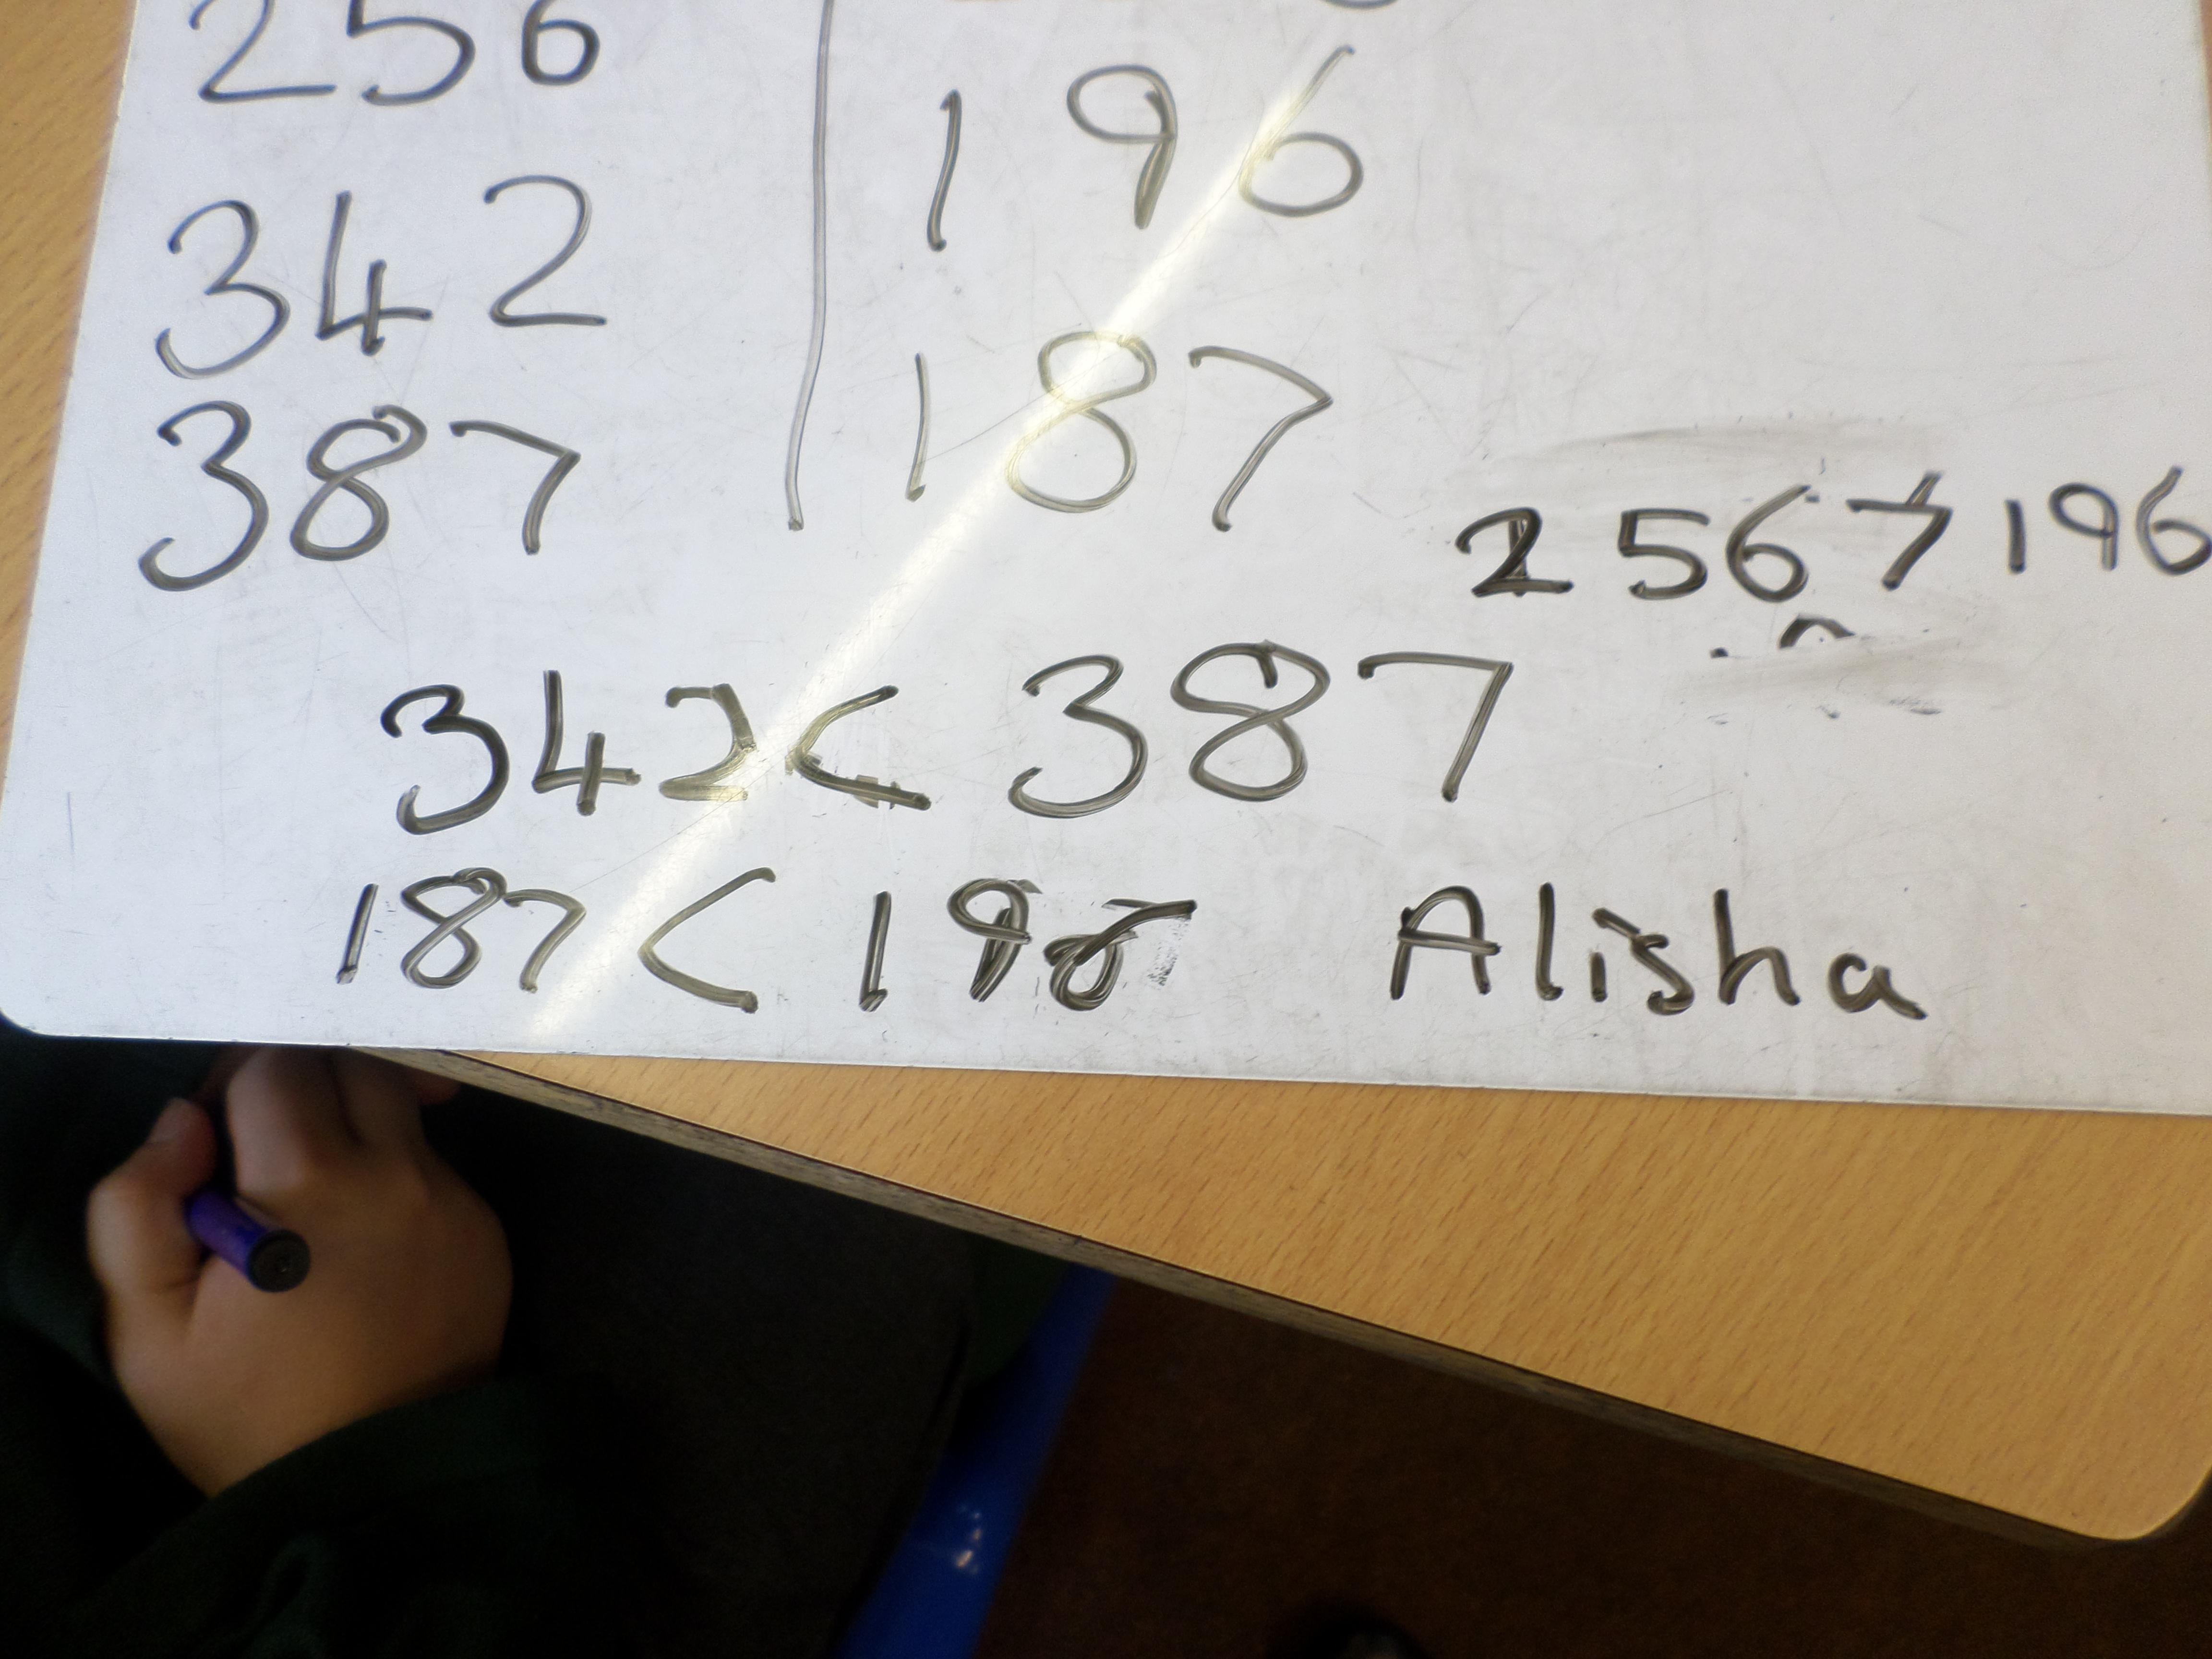 256
342
387
196
187
256 > 196
342 < 387
187 < 196
Alisha